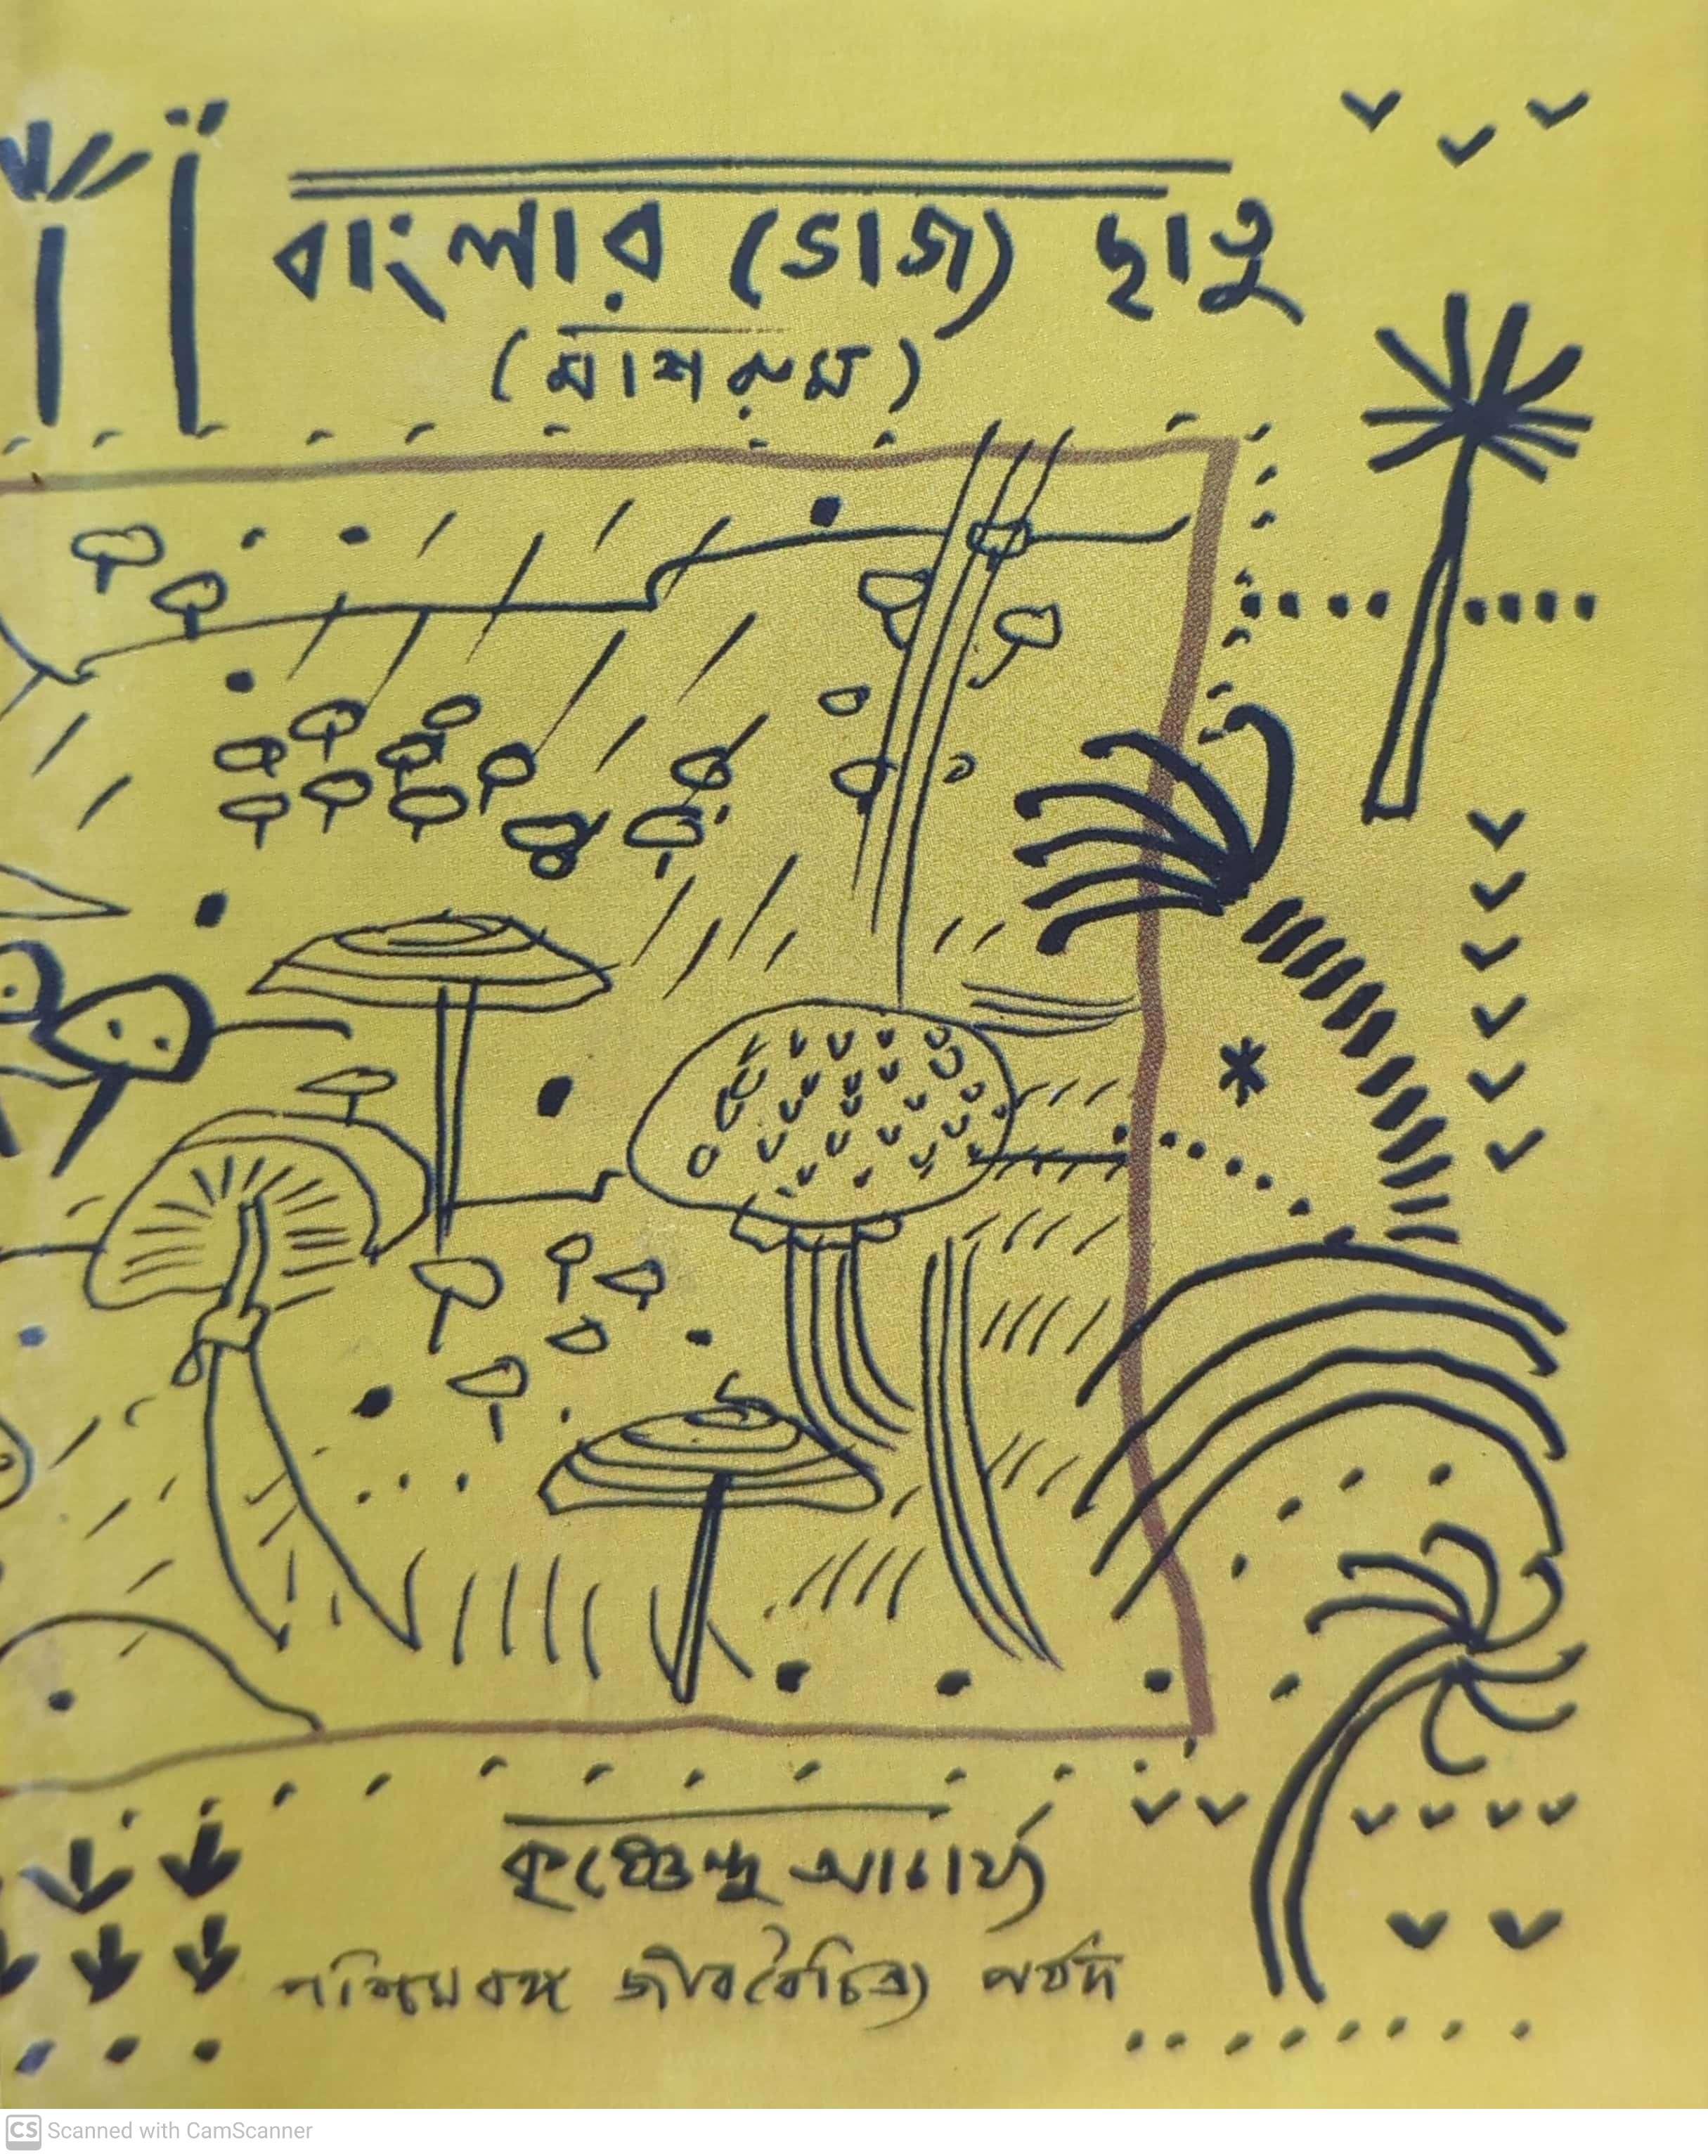 বাংলার (ভোজ) ছাতু
(মাশরুম)
কৃষ্ণেন্দু আচার্য্য
পশ্চিমবঙ্গ জীববৈচিত্র্য পর্ষদ
CS Scanned with CamScanner